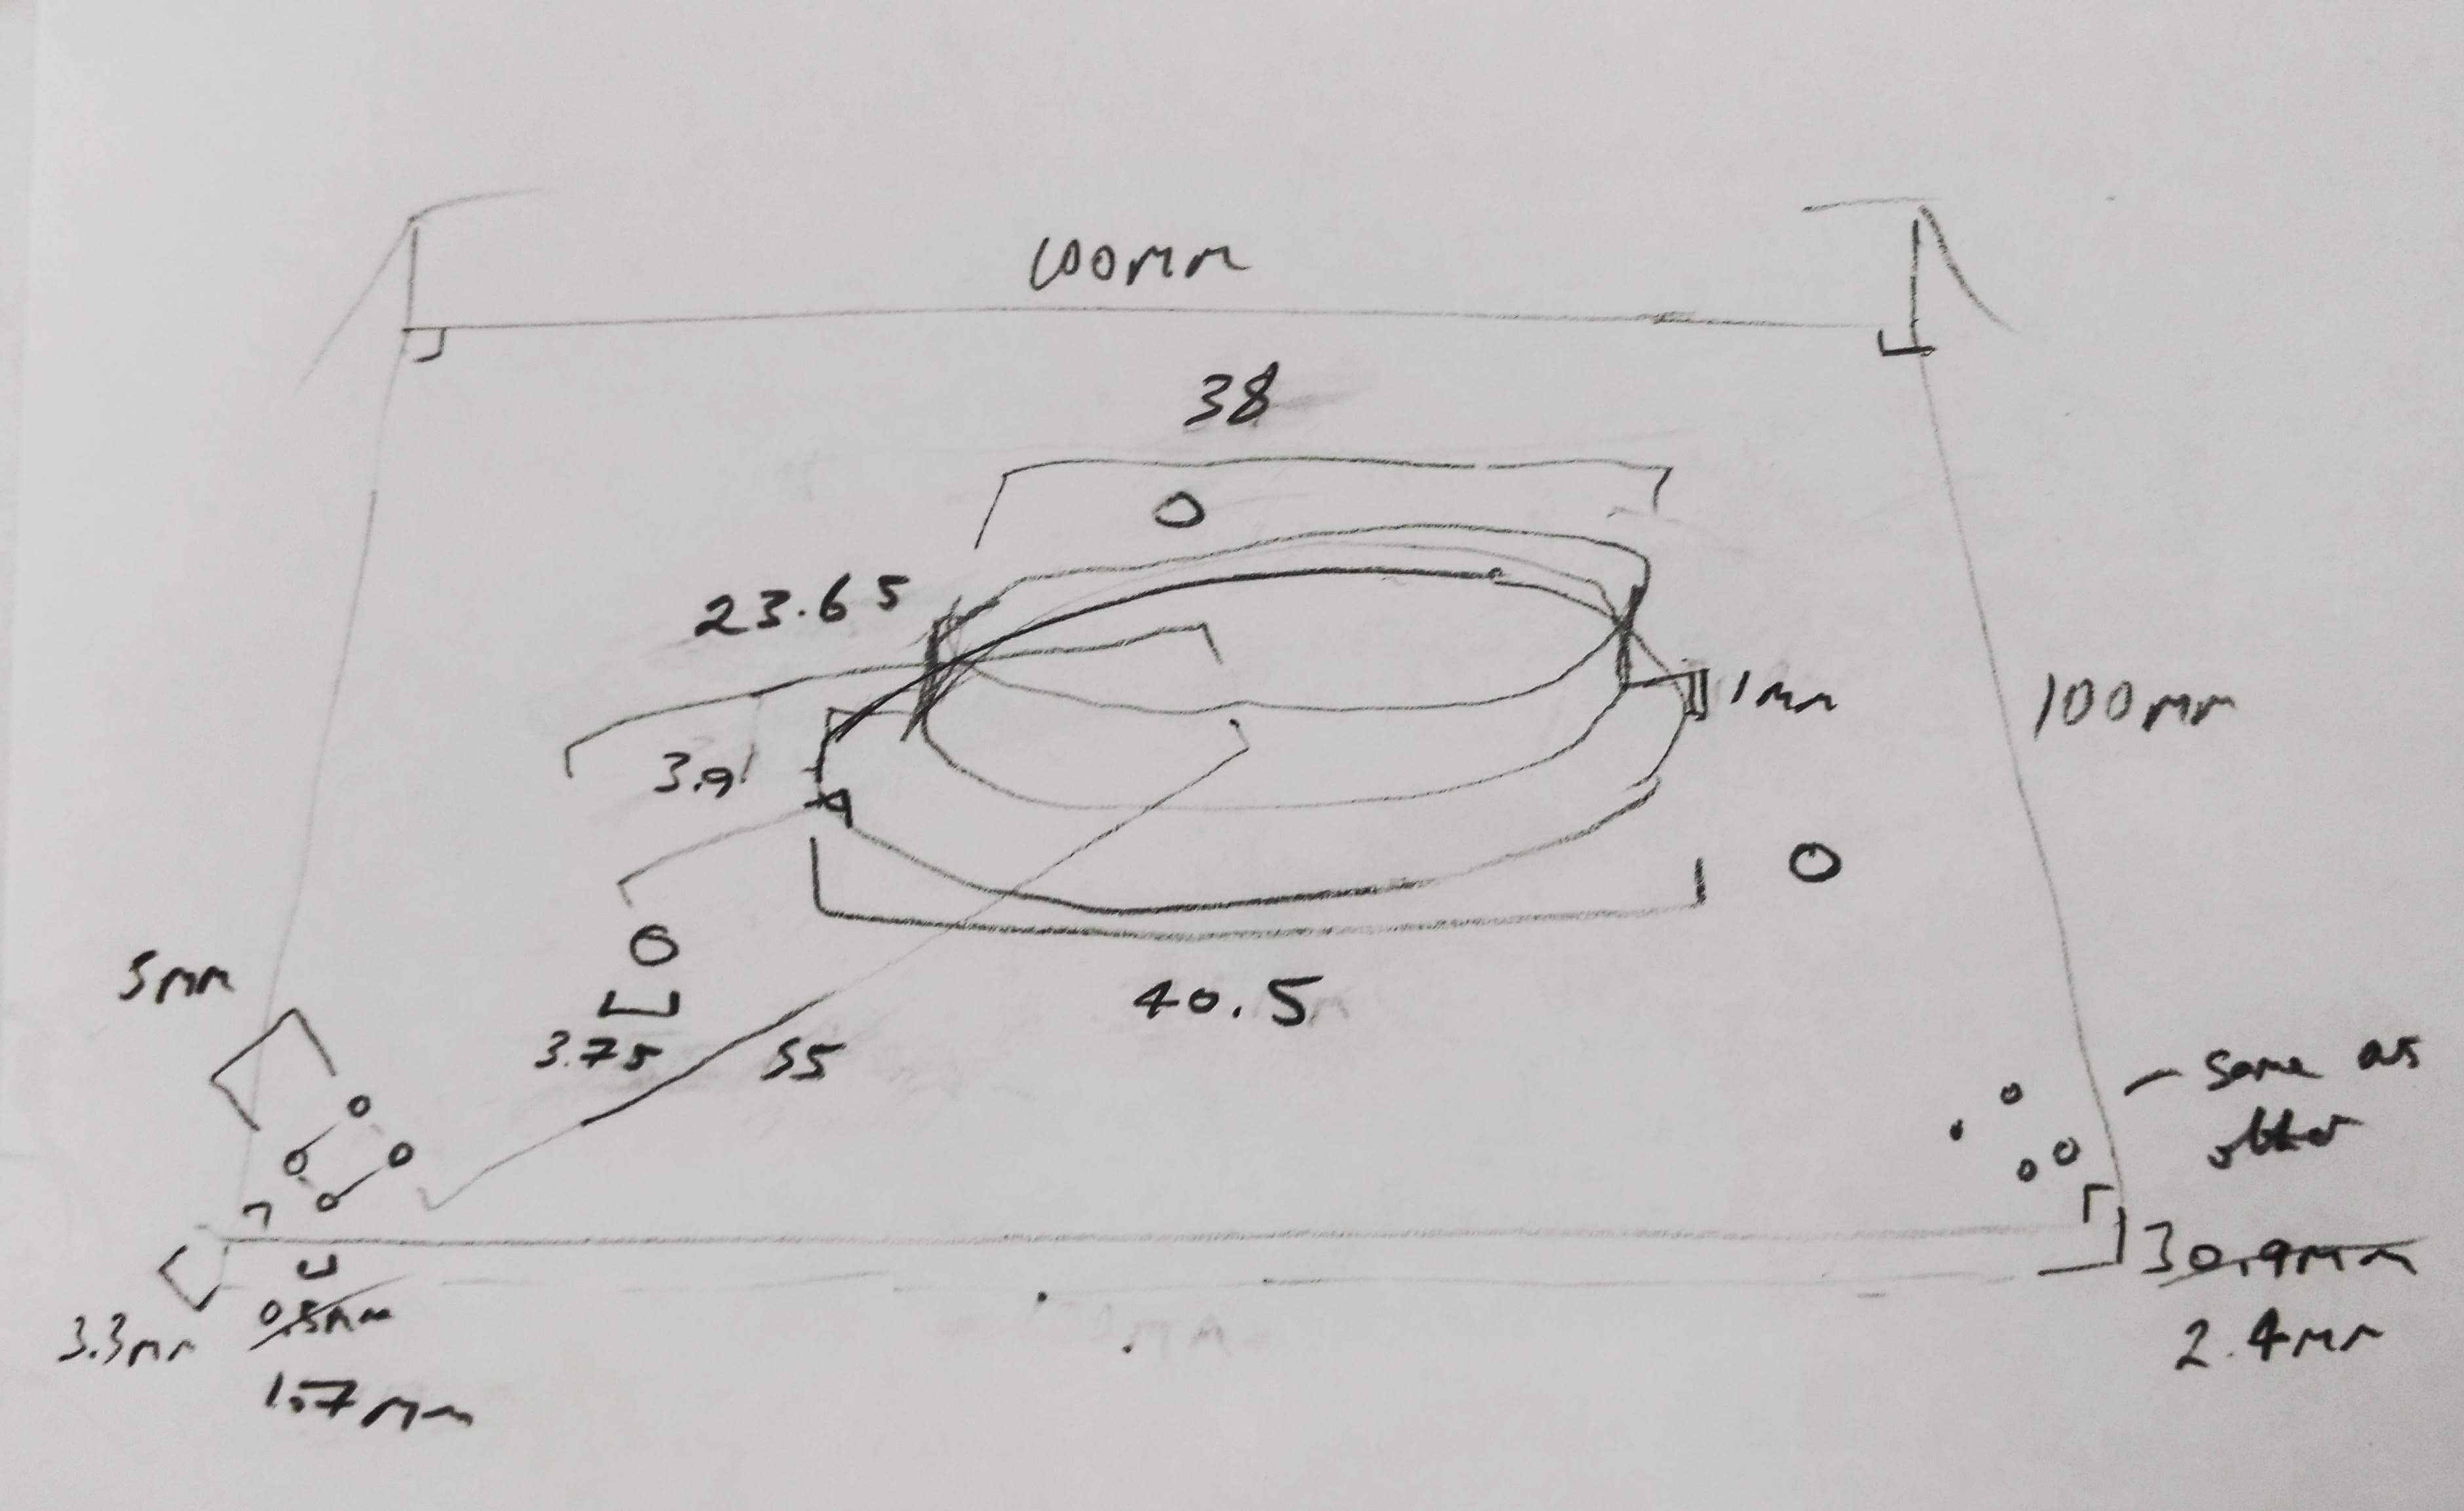 100mm
38
23.65
1mm
100mm
3.9
5mm
40.5
3.75
55
same as
other
0.9mm
2.4mm
3.3mm
0.5mm
1.7mm